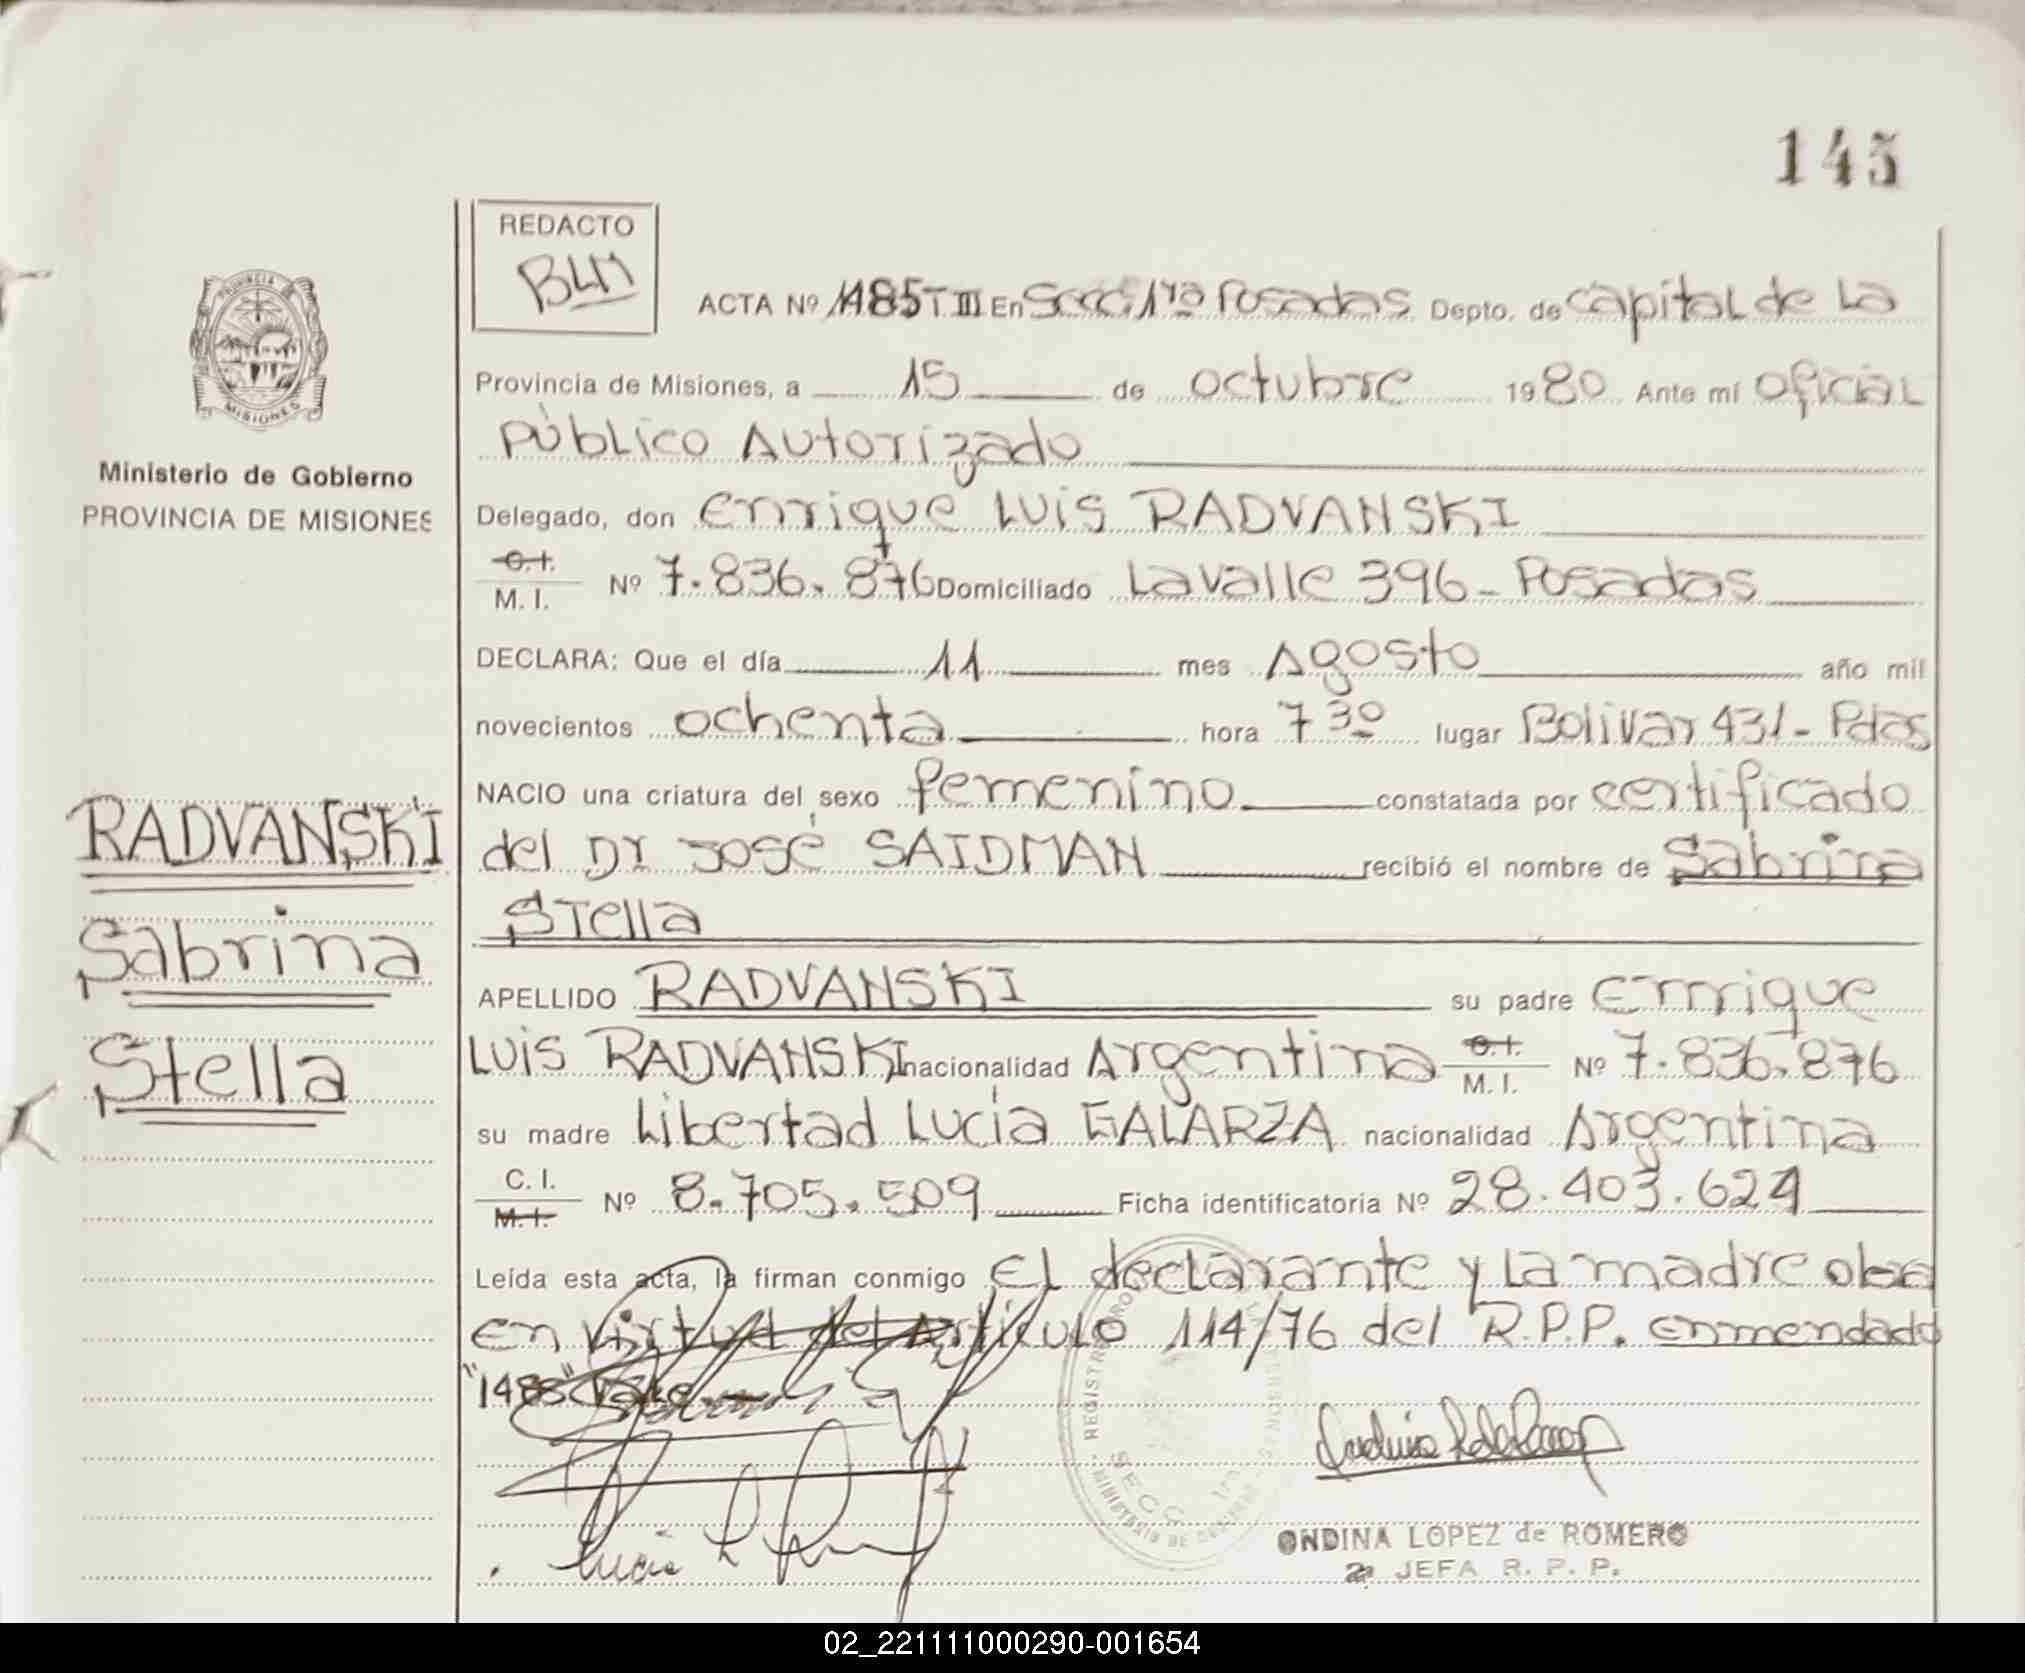 145
REDACTO
BLM
ACTA Nº 1485 T III En Secc. 1ra Posadas Depto. de Capital de La
Provincia de Misiones, a 15 de octubre 1980 Ante mí oficial
Público Autorizado
Delegado, don Enrique Luis RADVANSKI
C.I.
M. I. Nº 7.836.876 Domiciliado Lavalle 396 - Posadas
DECLARA: Que el día 11 mes Agosto año mil
novecientos ochenta hora 7 30 lugar Bolivar 431 - Pdas
NACIO una criatura del sexo femenino constatada por certificado
del Dr José SAIDMAN recibió el nombre de Sabrina
Stella
APELLIDO RADVANSKI su padre Enrique
Luis RADVANSKI nacionalidad Argentina C.I. M. I. Nº 7.836.876
su madre Libertad Lucía GALARZA nacionalidad Argentina
C. I.
M.I. Nº 8.705.509 Ficha identificatoria Nº 28.403.624
Leída esta acta, la firman conmigo El declarante y la madre
en virtud del Artículo 114/76 del R.P.P. enmendado
"1485" Vale
ONDINA LOPEZ de ROMERO
2ª JEFA R. P. P.
PROVINCIA
MISIONES
Ministerio de Gobierno
PROVINCIA DE MISIONES
RADVANSKI
Sabrina
Stella
REGISTRO
SECC. 1ra
MINISTERIO DE
02_221111000290-001654